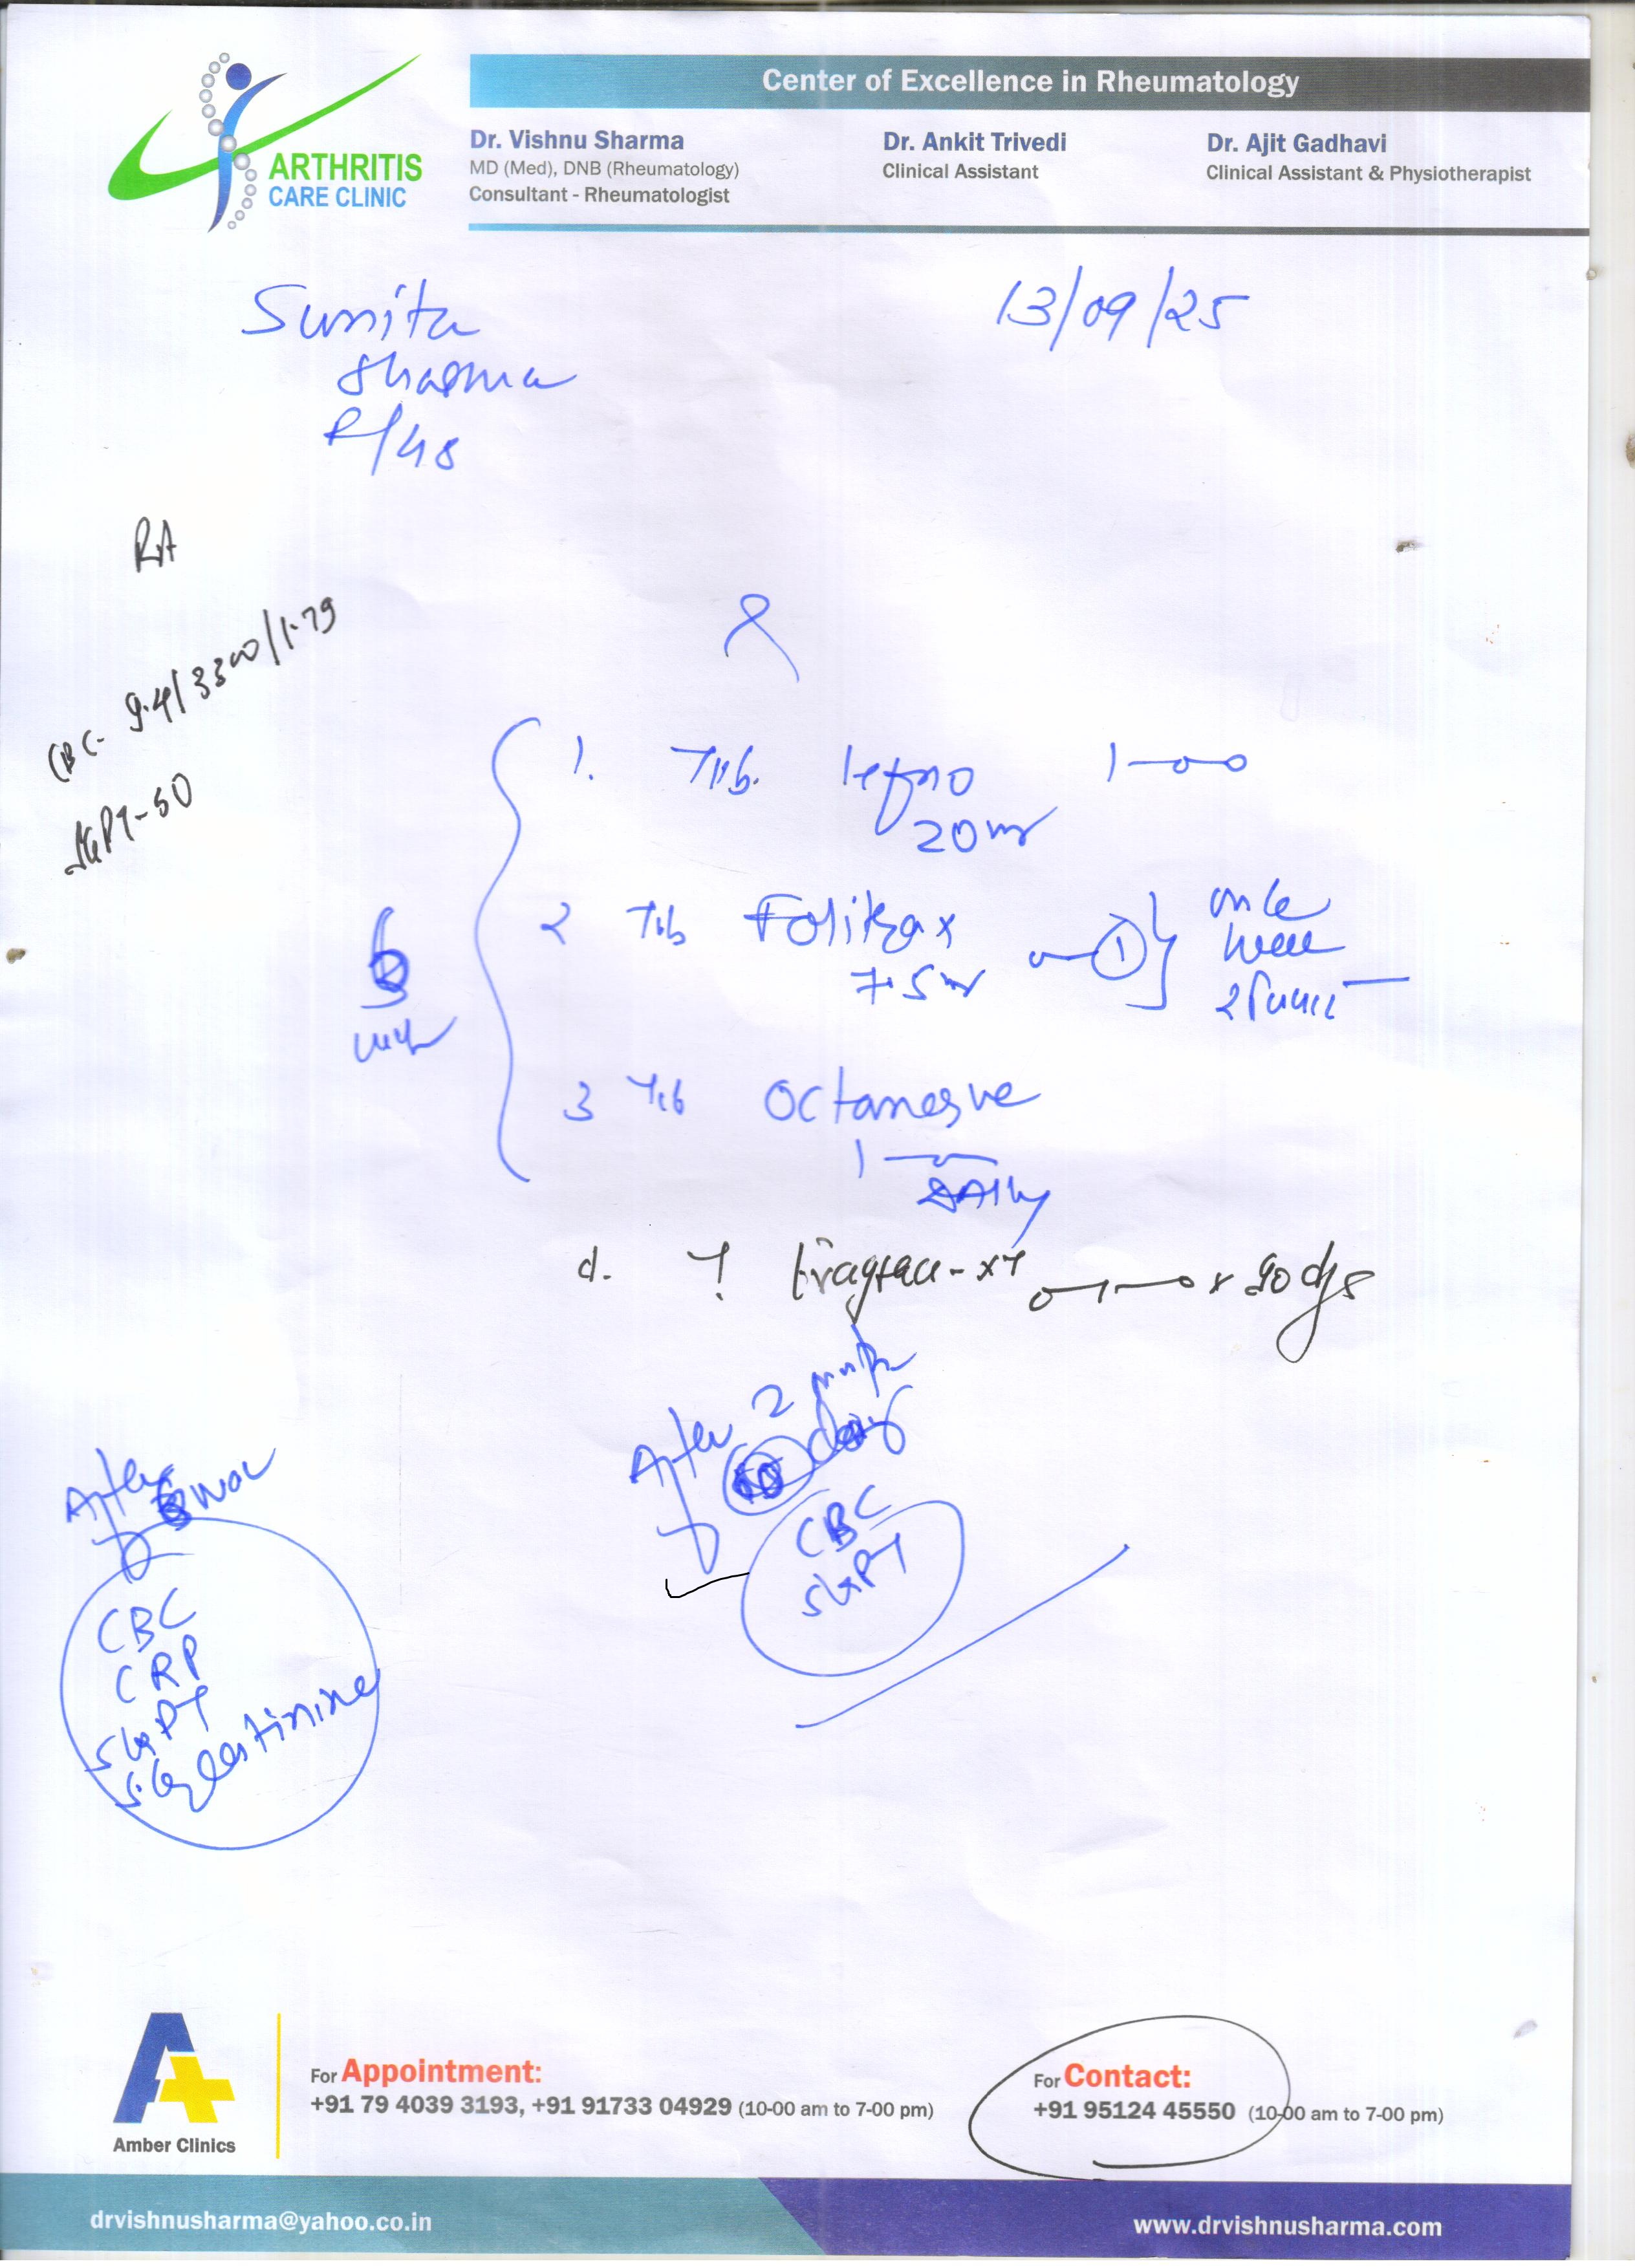 Center of Excellence in Rheumatology
ARTHRITIS
CARE CLINIC
Dr. Vishnu Sharma
MD (Med), DNB (Rheumatology)
Consultant - Rheumatologist
Dr. Ankit Trivedi
Clinical Assistant
Dr. Ajit Gadhavi
Clinical Assistant & Physiotherapist
Sunita
Sharma
F/48
13/09/25
RA
CBC- 9.4/3300/1.79
SGPT-50
1. Tab. lefno 1-0-0
20mg
2 Tab Folitrax
7.5mg
once
week
3 Tab Octanerve
1
Daily
x 90 dys
After 2 month
day
CBC
SGPT
After
CBC
CRP
SGPT
S. Creatinine
A+
Amber Clinics
For Appointment:
+91 79 4039 3193, +91 91733 04929 (10-00 am to 7-00 pm)
For Contact:
+91 95124 45550 (10-00 am to 7-00 pm)
drvishnusharma@yahoo.co.in
www.drvishnusharma.com